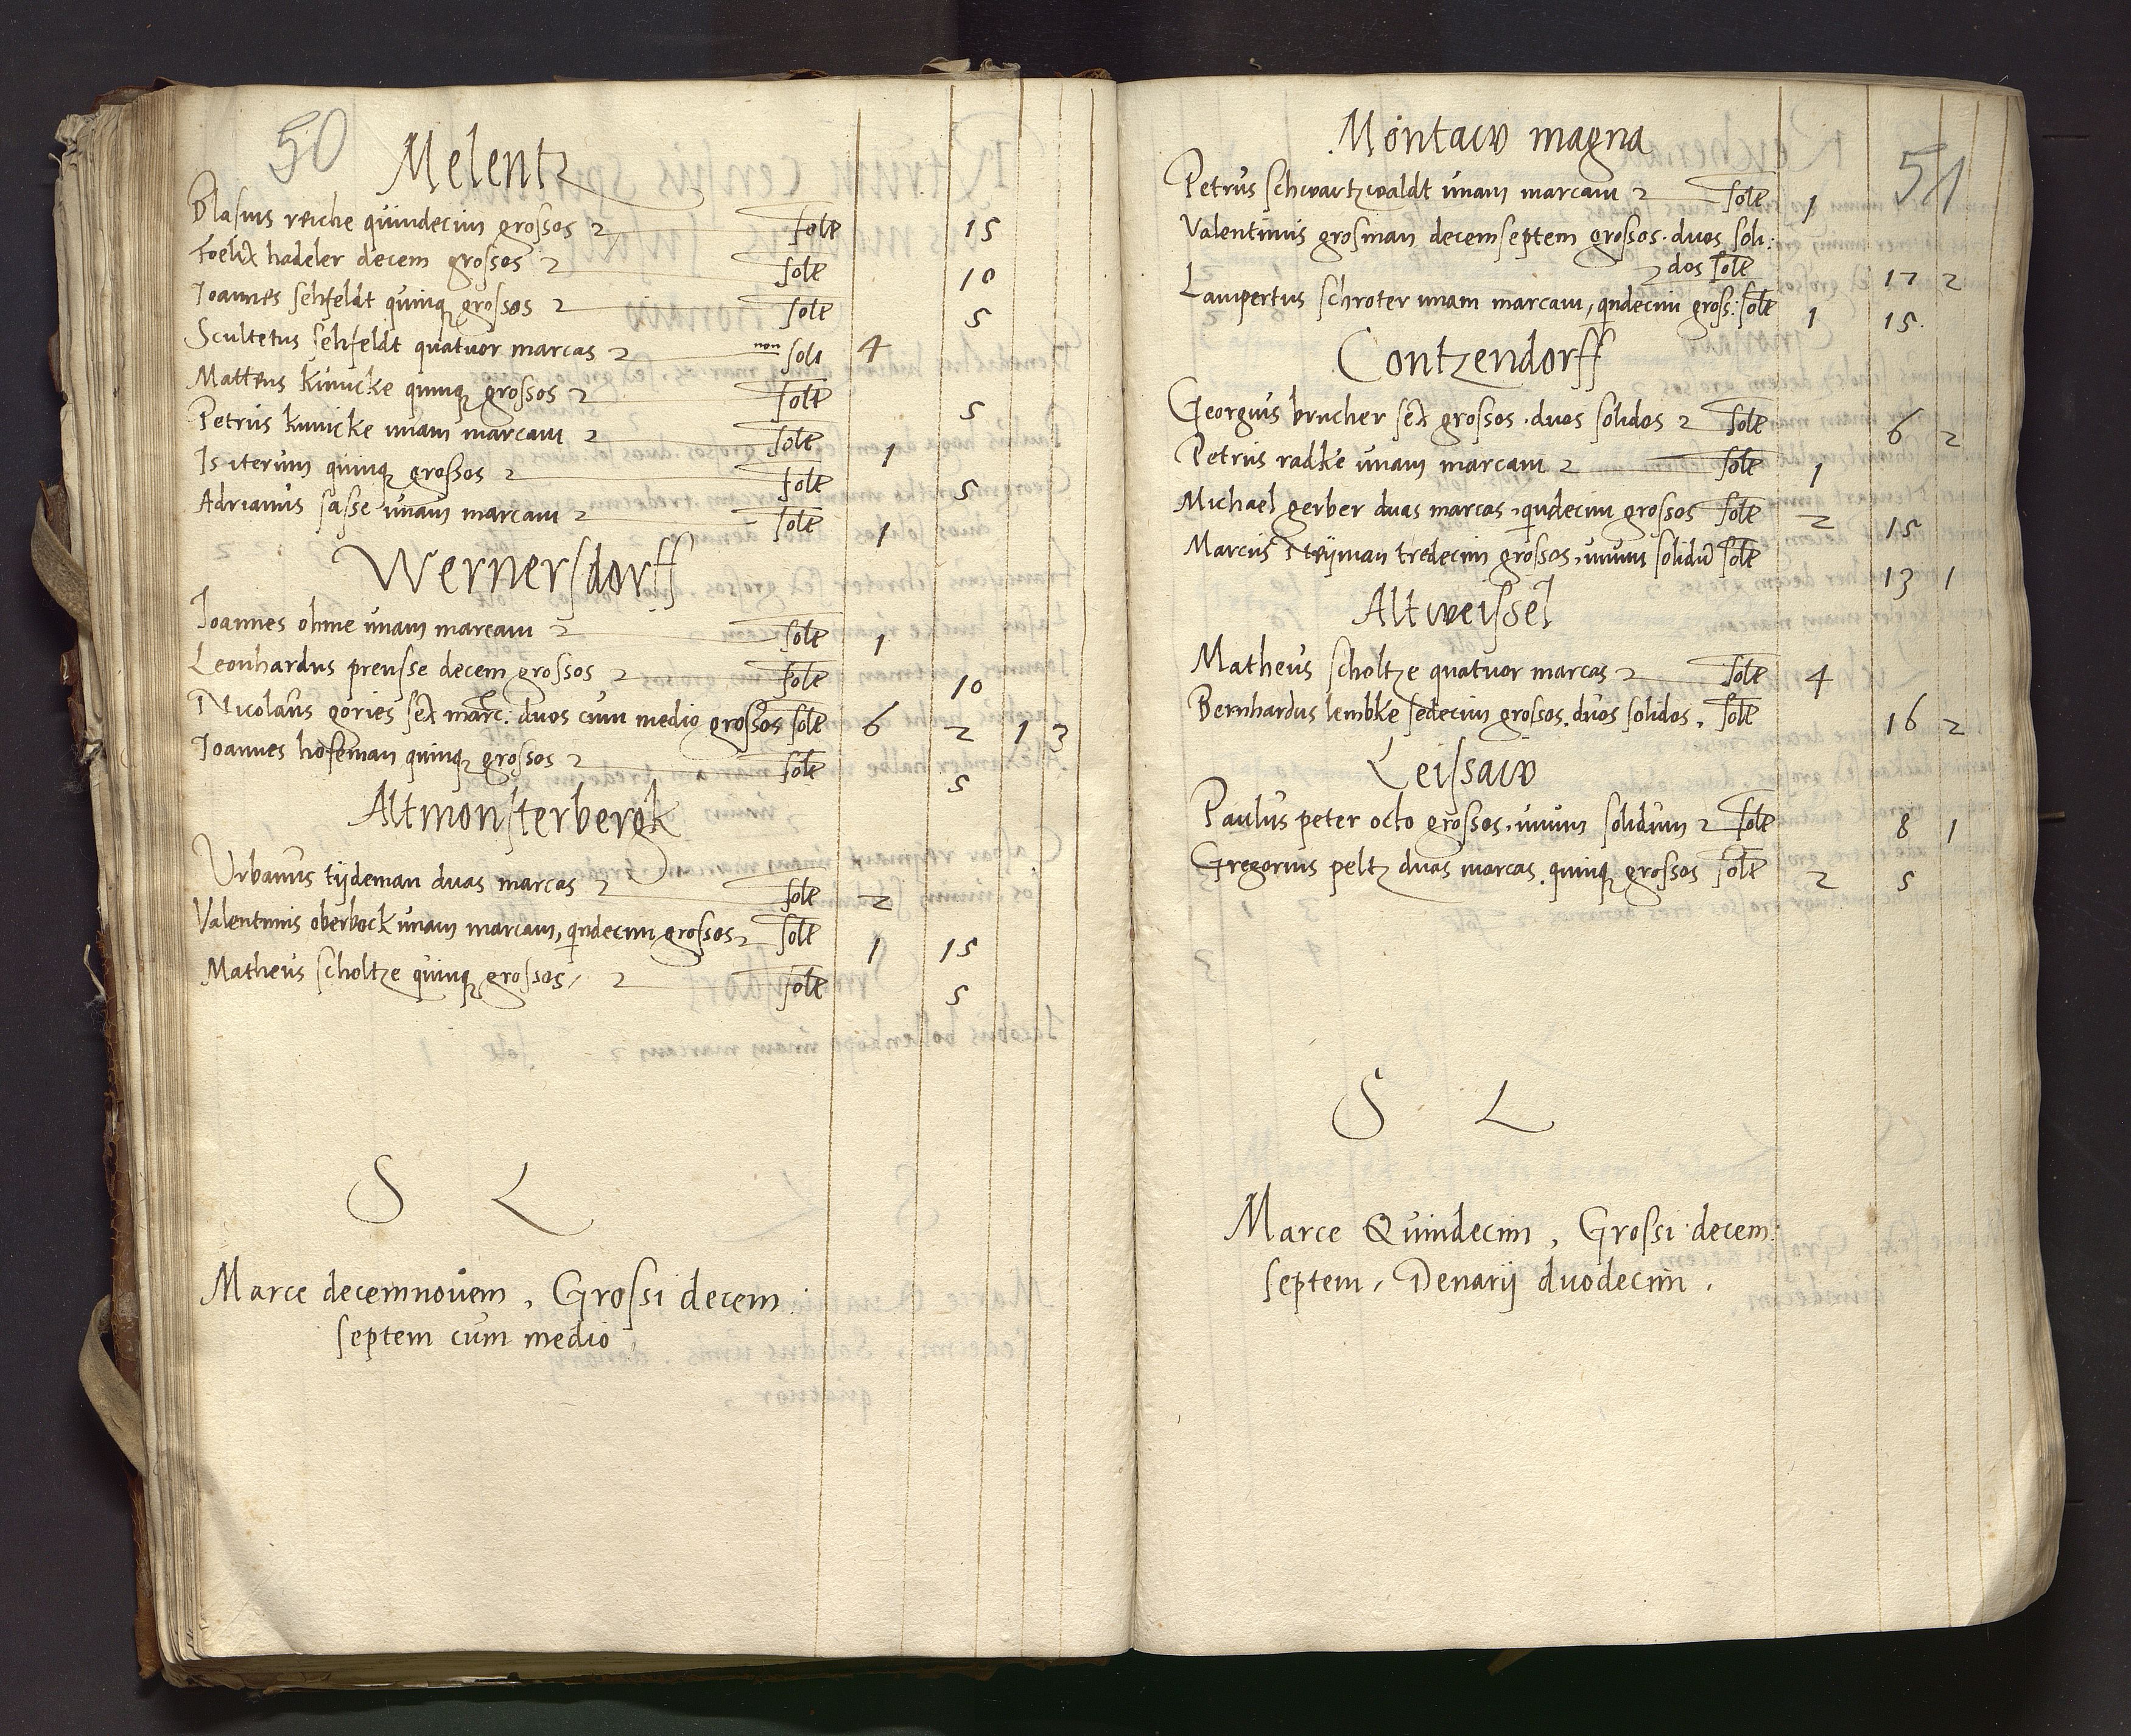 50
Melentz
Blasius reiche quindecim grossos 2 solt 15
Foelix hadeler decem grossos 2 solt 10
Ioannes sehfeldt quinq grossos 2 solt 5
Scultetus sehfeldt quatuor marcas 2 non soli 4
Matteus kunicke quinq grossos 2 solt 5
Petrus kunicke unam marcam 2 solt 1
Is iterum quinq grossos 2 solt 5
Adrianus sasse unam marcam 2 solt 1
Wernersdorff
Ioannes ohme unam marcam 2 solt 1
Leonhardus preusse decem grossos 2 solt 10
Nicolaus gories sex marc. duos cum medio grossos solt 6 2 1 3
Ioannes hofeman quinq grossos 2 solt 5
Altmonsterbergk
Urbanus tijdeman duas marcas 2 solt 2
Valentinus oberbock unam marcam, qindecim grossos 2 solt 1 15
Matheus scholtze quinq grossos, 2 solt 5
S L
Marce decemnovem, Grossi decem:
septem cum medio
51
Montaw magna
Petrus schwartzwaldt unam marcam 2 solt 1
Valentinus grosman decemseptem grossos. duos soli:
2 dos solt 17 2
Lampertus schroter unam marcam, qindecim gross: solt 1 15.
Contzendorff
Georgius brucher sex grossos. duos solidos 2 solt 6 2
Petrus radke unam marcam 2 solt 1
Michael gerber duas marcas, qindecim grossos solt 2 15
Marcus tredecim grossos, unum solidu solt 13 1
Altweissel
Matheus scholtze quatuor marcas 2 solt 4
Bernhardus lembke sedecim grossos. duos solidos, solt 16 2
Leissaw
Paulus peter octo grossos, unum solidum 2 solt 8 1
Gregorius peltz duas marcas. quinq grossos solt 2 5
S L
Marce Quindecim, Grossi decem:
septem, Denarij duodecim.